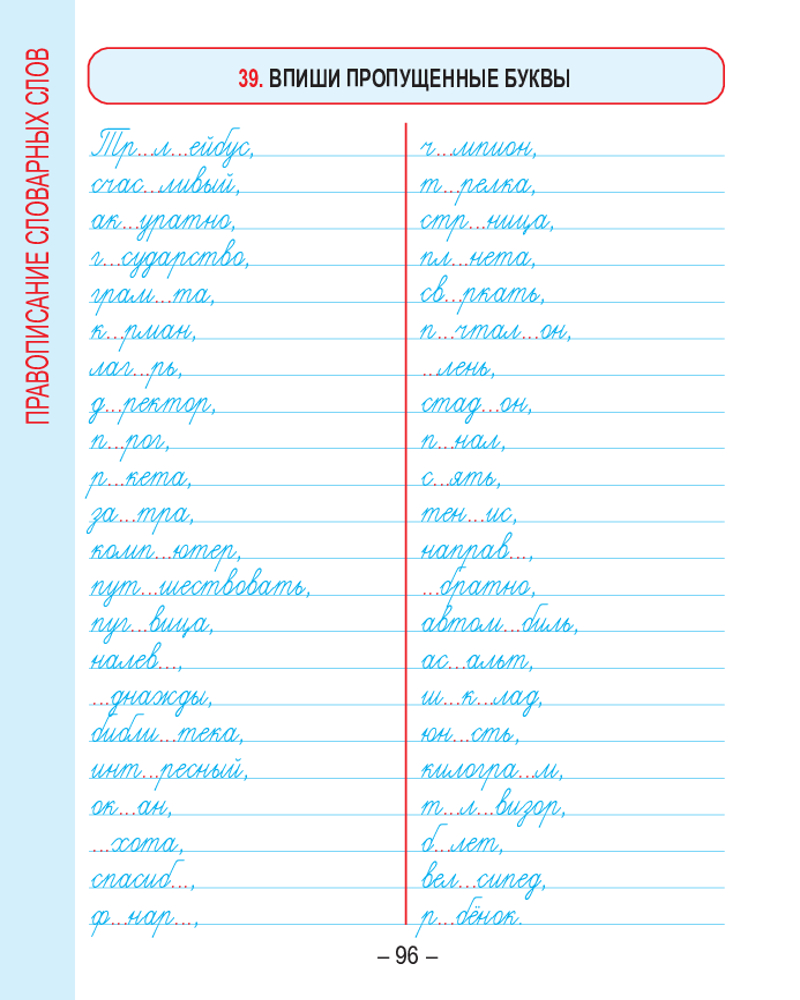 ПРАВОПИСАНИЕ СЛОВАРНЫХ СЛОВ
39. ВПИШИ ПРОПУЩЕННЫЕ БУКВЫ
Тр...л...ейбус,
счас...ливый,
ак...уратно,
г...сударство,
грам...та,
к...рман,
лаг...рь,
д...ректор,
п...рог,
р...кета,
за...тра,
комп...ютер,
пут...шествовать,
пуг...вица,
налев...,
...днажды,
библи...тека,
инт...ресный,
ок...ан,
...хота,
спасиб...,
ф...нар...,
ч...мпион,
т...релка,
стр...ница,
пл...нета,
св...ркать,
п...чтал...он,
...лень,
стад...он,
п...нал,
с...ять,
тен...ис,
направ...,
...братно,
автом...биль,
ас...альт,
ш...к...лад,
юн...сть,
килогра...м,
т...л...визор,
б...лет,
вел...сипед,
р...бёнок.
– 96 –